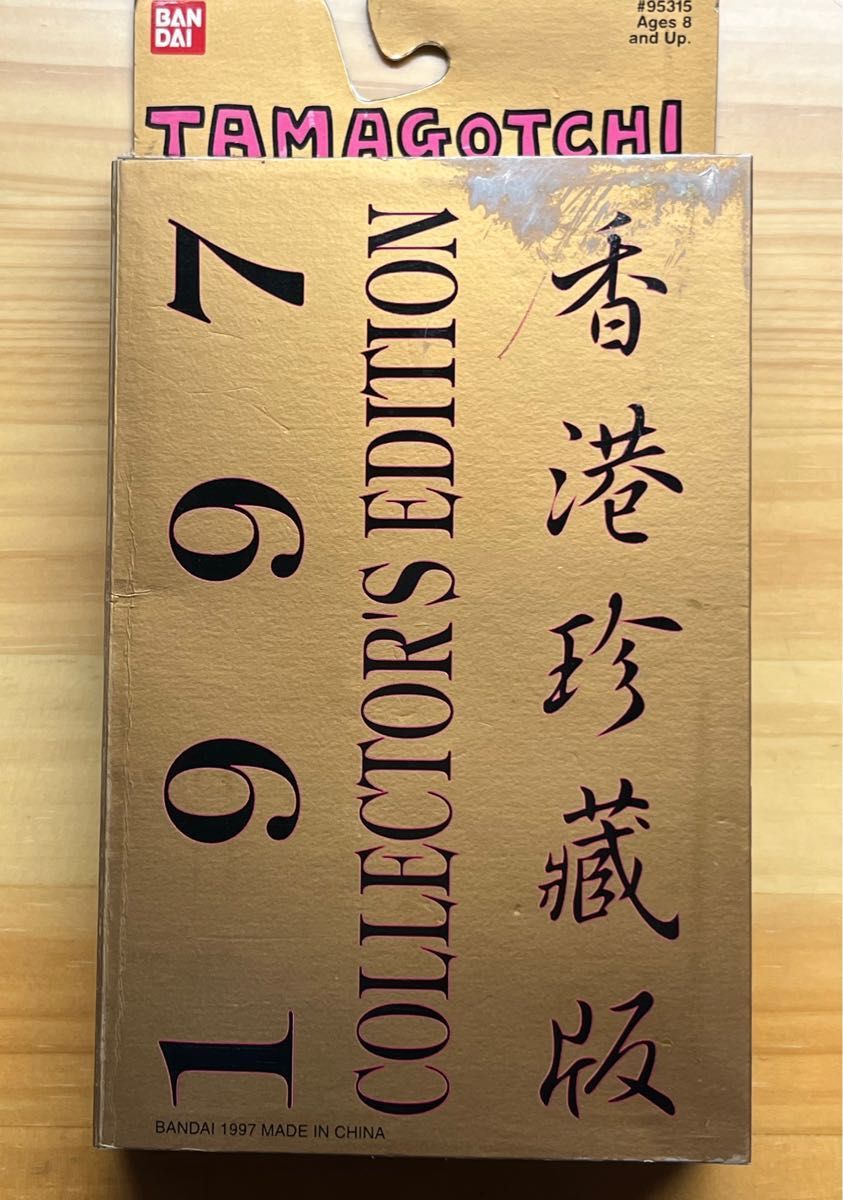 BAN
DAI
#95315
Ages 8
and Up.
TAMAGOTCHI
1997
COLLECTOR'S EDITION
香港珍藏版
BANDAI 1997 MADE IN CHINA